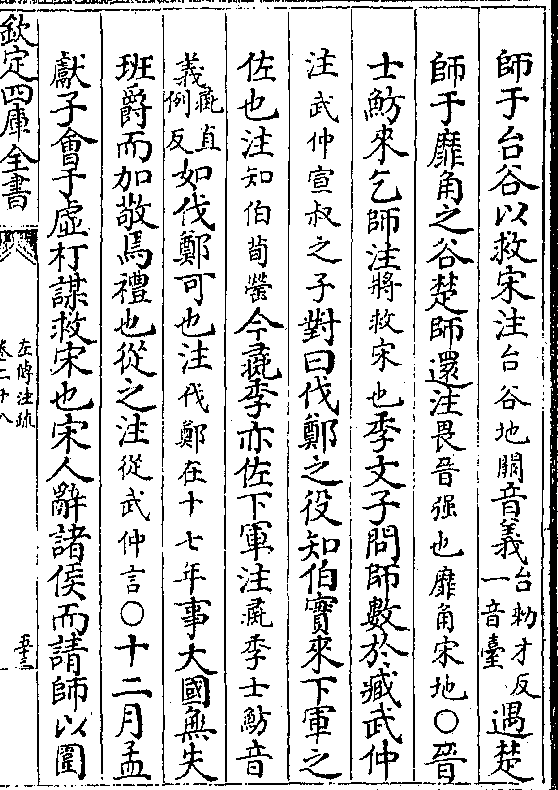 師于台谷以救宋注台谷地闕音義台勑才反一音臺遇楚
師于靡角之谷楚師還注畏晉强也靡角宋地○晉
士魴來乞師注將救宋也季文子問師數於臧武仲
注武仲宣叔之子對曰伐鄭之役知伯實來下軍之
佐也注知伯荀罃今彘季亦佐下軍注彘季士魴音
義彘直例反如伐鄭可也注伐鄭在十七年事大國無失
班爵而加敬焉禮也從之注從武仲言○十二月孟
獻子會于虛朾謀救宋也宋人辭諸侯而請師以圍
欽定四庫全書
左傳注疏
卷二十八